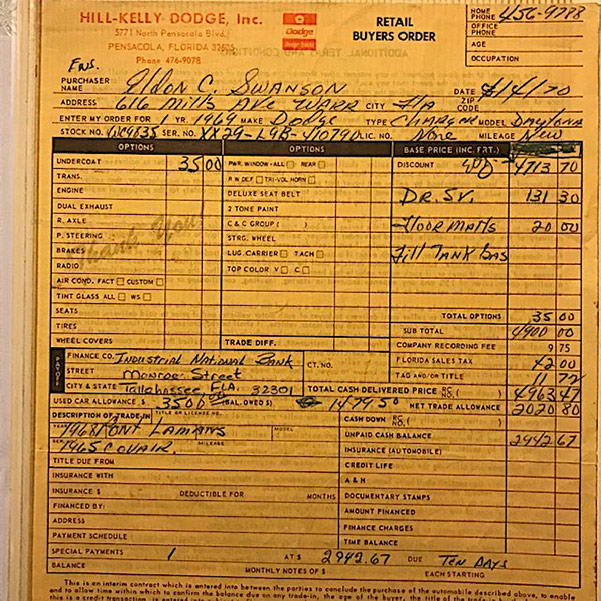 HILL-KELLY DODGE, Inc.
5771 North Pensacola Blvd.
PENSACOLA, FLORIDA 32505
Phone 476-9078
Dodge
RETAIL BUYERS ORDER
HOME PHONE 456-9788
AGE
OCCUPATION
PURCHASER NAME Eldon C. Swanson DATE
ADDRESS 616 Mills Ave Warr CITY Fla ZIP CODE
ENTER MY ORDER FOR 1 YR. 1969 MAKE Dodge TYPE Charger MODEL Daytona
STOCK NO. SER. NO. XX29-L9B-410790 LIC. NO. None MILEAGE New
OPTIONS OPTIONS BASE PRICE (INC. FRT.)
UNDERCOAT 35 00 PWR. WINDOW-ALL REAR DISCOUNT 4713 70
TRANS. R W DEF TRI-VOL. HORN
ENGINE DELUXE SEAT BELT DR. SV. 131 30
DUAL EXHAUST 2 TONE PAINT
R. AXLE C & C GROUP ( ) Floor Matts 20 00
P. STEERING STRG. WHEEL
Thank You
BRAKES LUG. CARRIER TACH Fill Tank Gas
RADIO TOP COLOR V C
AIR COND. FACT CUSTOM
TINT GLASS ALL WS
SEATS TOTAL OPTIONS 35 00
TIRES SUB TOTAL 4900 00
WHEEL COVERS TRADE DIFF. COMPANY RECORDING FEE 9 75
FINANCE CO. Industrial National Bank CT. NO. FLORIDA SALES TAX 42 00
STREET Monroe Street TAG AND/OR TITLE 11 72
CITY & STATE Tallahassee FLA. 32301 TOTAL CASH DELIVERED PRICE RC NO. ( ) 4963 47
USED CAR ALLOWANCE $ 3500 (BAL. OWED $) 1479 50 NET TRADE ALLOWANCE 2020 80
DESCRIPTION OF TRADE-IN TITLE OR LICENSE NO. CASH DOWN RC NO. ( )
YEAR 1968 Pont Lamans MODEL UNPAID CASH BALANCE 2942.67
1965 Covair. MILEAGE INSURANCE (AUTOMOBILE)
TITLE DUE FROM CREDIT LIFE
INSURANCE WITH A & H
INSURANCE $ DEDUCTIBLE FOR MONTHS DOCUMENTARY STAMPS
FINANCED BY: AMOUNT FINANCED
ADDRESS FINANCE CHARGES
PAYMENT SCHEDULE TIME BALANCE
SPECIAL PAYMENTS 1 AT $ 2942.67 DUE Ten Days
BALANCE MONTHLY NOTES OF $ EACH STARTING
This is an interim contract which is entered into between the parties to conclude the purchase of the automobile described above, to enable
and to allow time within which to confirm the balance due on any trade-in, the age of the buyer, the title of the trade-in